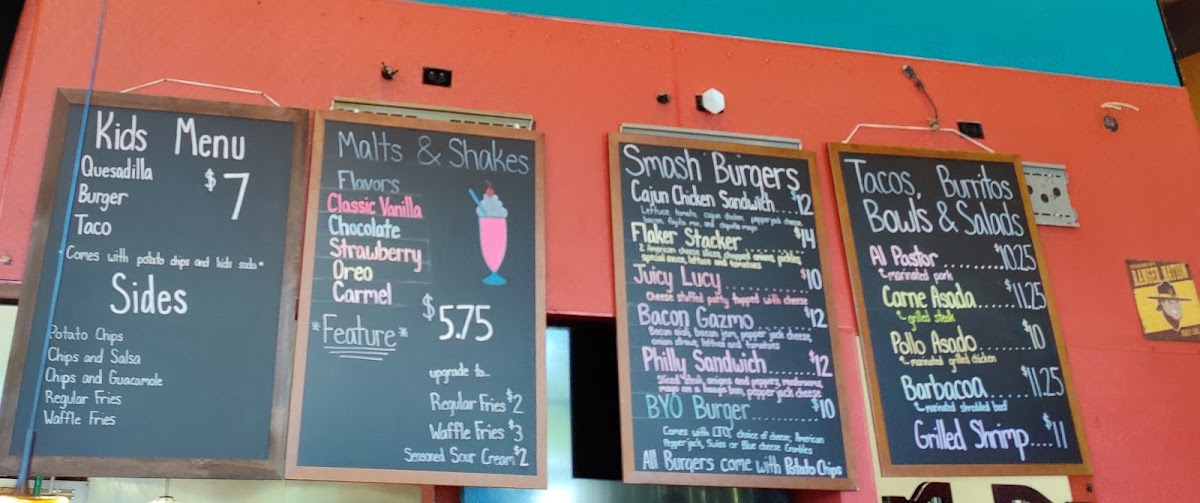 Kids Menu
Quesadilla
Burger
Taco
$7
*Comes with potato chips and kids soda*
Sides
Potato Chips
Chips and Salsa
Chips and Guacamole
Regular Fries
Waffle Fries
Malts & Shakes
Flavors
Classic Vanilla
Chocolate
Strawberry
Oreo
Carmel
$5.75
*Feature*
upgrade to...
Regular Fries $2
Waffle Fries $3
Seasoned Sour Cream $2
Smash Burgers
Cajun Chicken Sandwich....$12
Lettuce, tomato, cajun chicken, pepperjack cheese,
bacon, fajita mix, and chipotle mayo
Flaker Stacker.........$14
2 American cheese slices, chopped onions, pickles,
special sauce, lettuce and tomatoes
Juicy Lucy............$10
Cheese stuffed patty topped with cheese
Bacon Gazmo.........$12
Bacon aioli, bacon jam, pepper jack cheese,
onion straws, lettuce and tomatoes
Philly Sandwich.......$12
Sliced steak, onions and peppers, mushrooms,
mayo on a hoagie bun, pepper jack cheese
BYO Burger..........$10
Comes with LTO, choice of cheese; American
Pepperjack, Swiss or Blue cheese Crumbles
All Burgers come with Potato Chips
Tacos, Burritos
Bowls & Salads
Al Pastor.........$10.25
marinated pork
Carne Asada.....$11.25
grilled steak
Pollo Asado........$10
marinated grilled chicken
Barbacoa.......$11.25
marinated shredded beef
Grilled Shrimp....$11
RANGER NATION